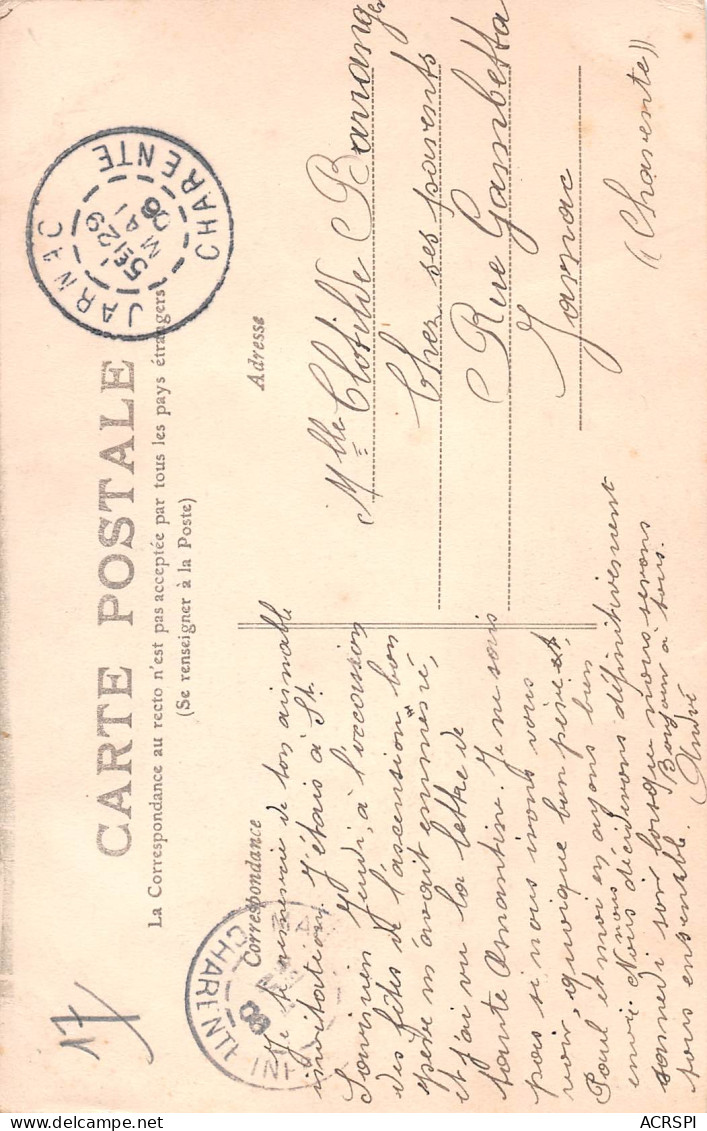 CARTE POSTALE
La Correspondance au recto n'est pas acceptée par tous les pays étrangers
(Se renseigner à la Poste)
Correspondance
Adresse
JARNAC
CHARENTE
5E
29
MAI
06
CHARENTE
17
Je te remercie de ton aimable
invitation. J'étais à St.
Jeudi, à l'occasion
des fêtes de l'ascension bon
père m'avait emmené,
et j'ai vu la lettre de
tante Amantine. Je ne sais
pas si nous irons vous
voir, quoique bon père et
Paul et moi en ayons bien
envie. Nous nous déciderons définitivement
samedi soir lorsque nous serons
tous ensemble. Bonjour à tous.
André
Mlle Clotilde
Chez ses parents
Rue Gambetta
Jarnac
(Charente)
ACRSPI